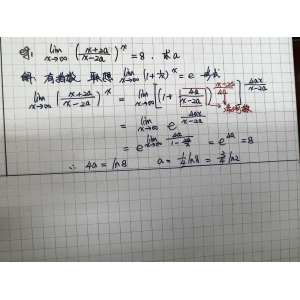 例: lim x→∞ ((x+2a)/(x-2a))^x = 8 . 求a
解: 有指数 联想 lim x→∞ (1+1/x)^x = e
lim x→∞ ((x+2a)/(x-2a))^x = lim x→∞ [(1+ 4a/(x-2a))^((x-2a)/4a)]^(4ax/(x-2a))
= lim x→∞ e^(4ax/(x-2a))
= e^(lim x→∞ 4a/(1-2a/x)) = e^(4a) = 8
∴ 4a = ln8 a = 1/4 ln8 = 3/4 ln2